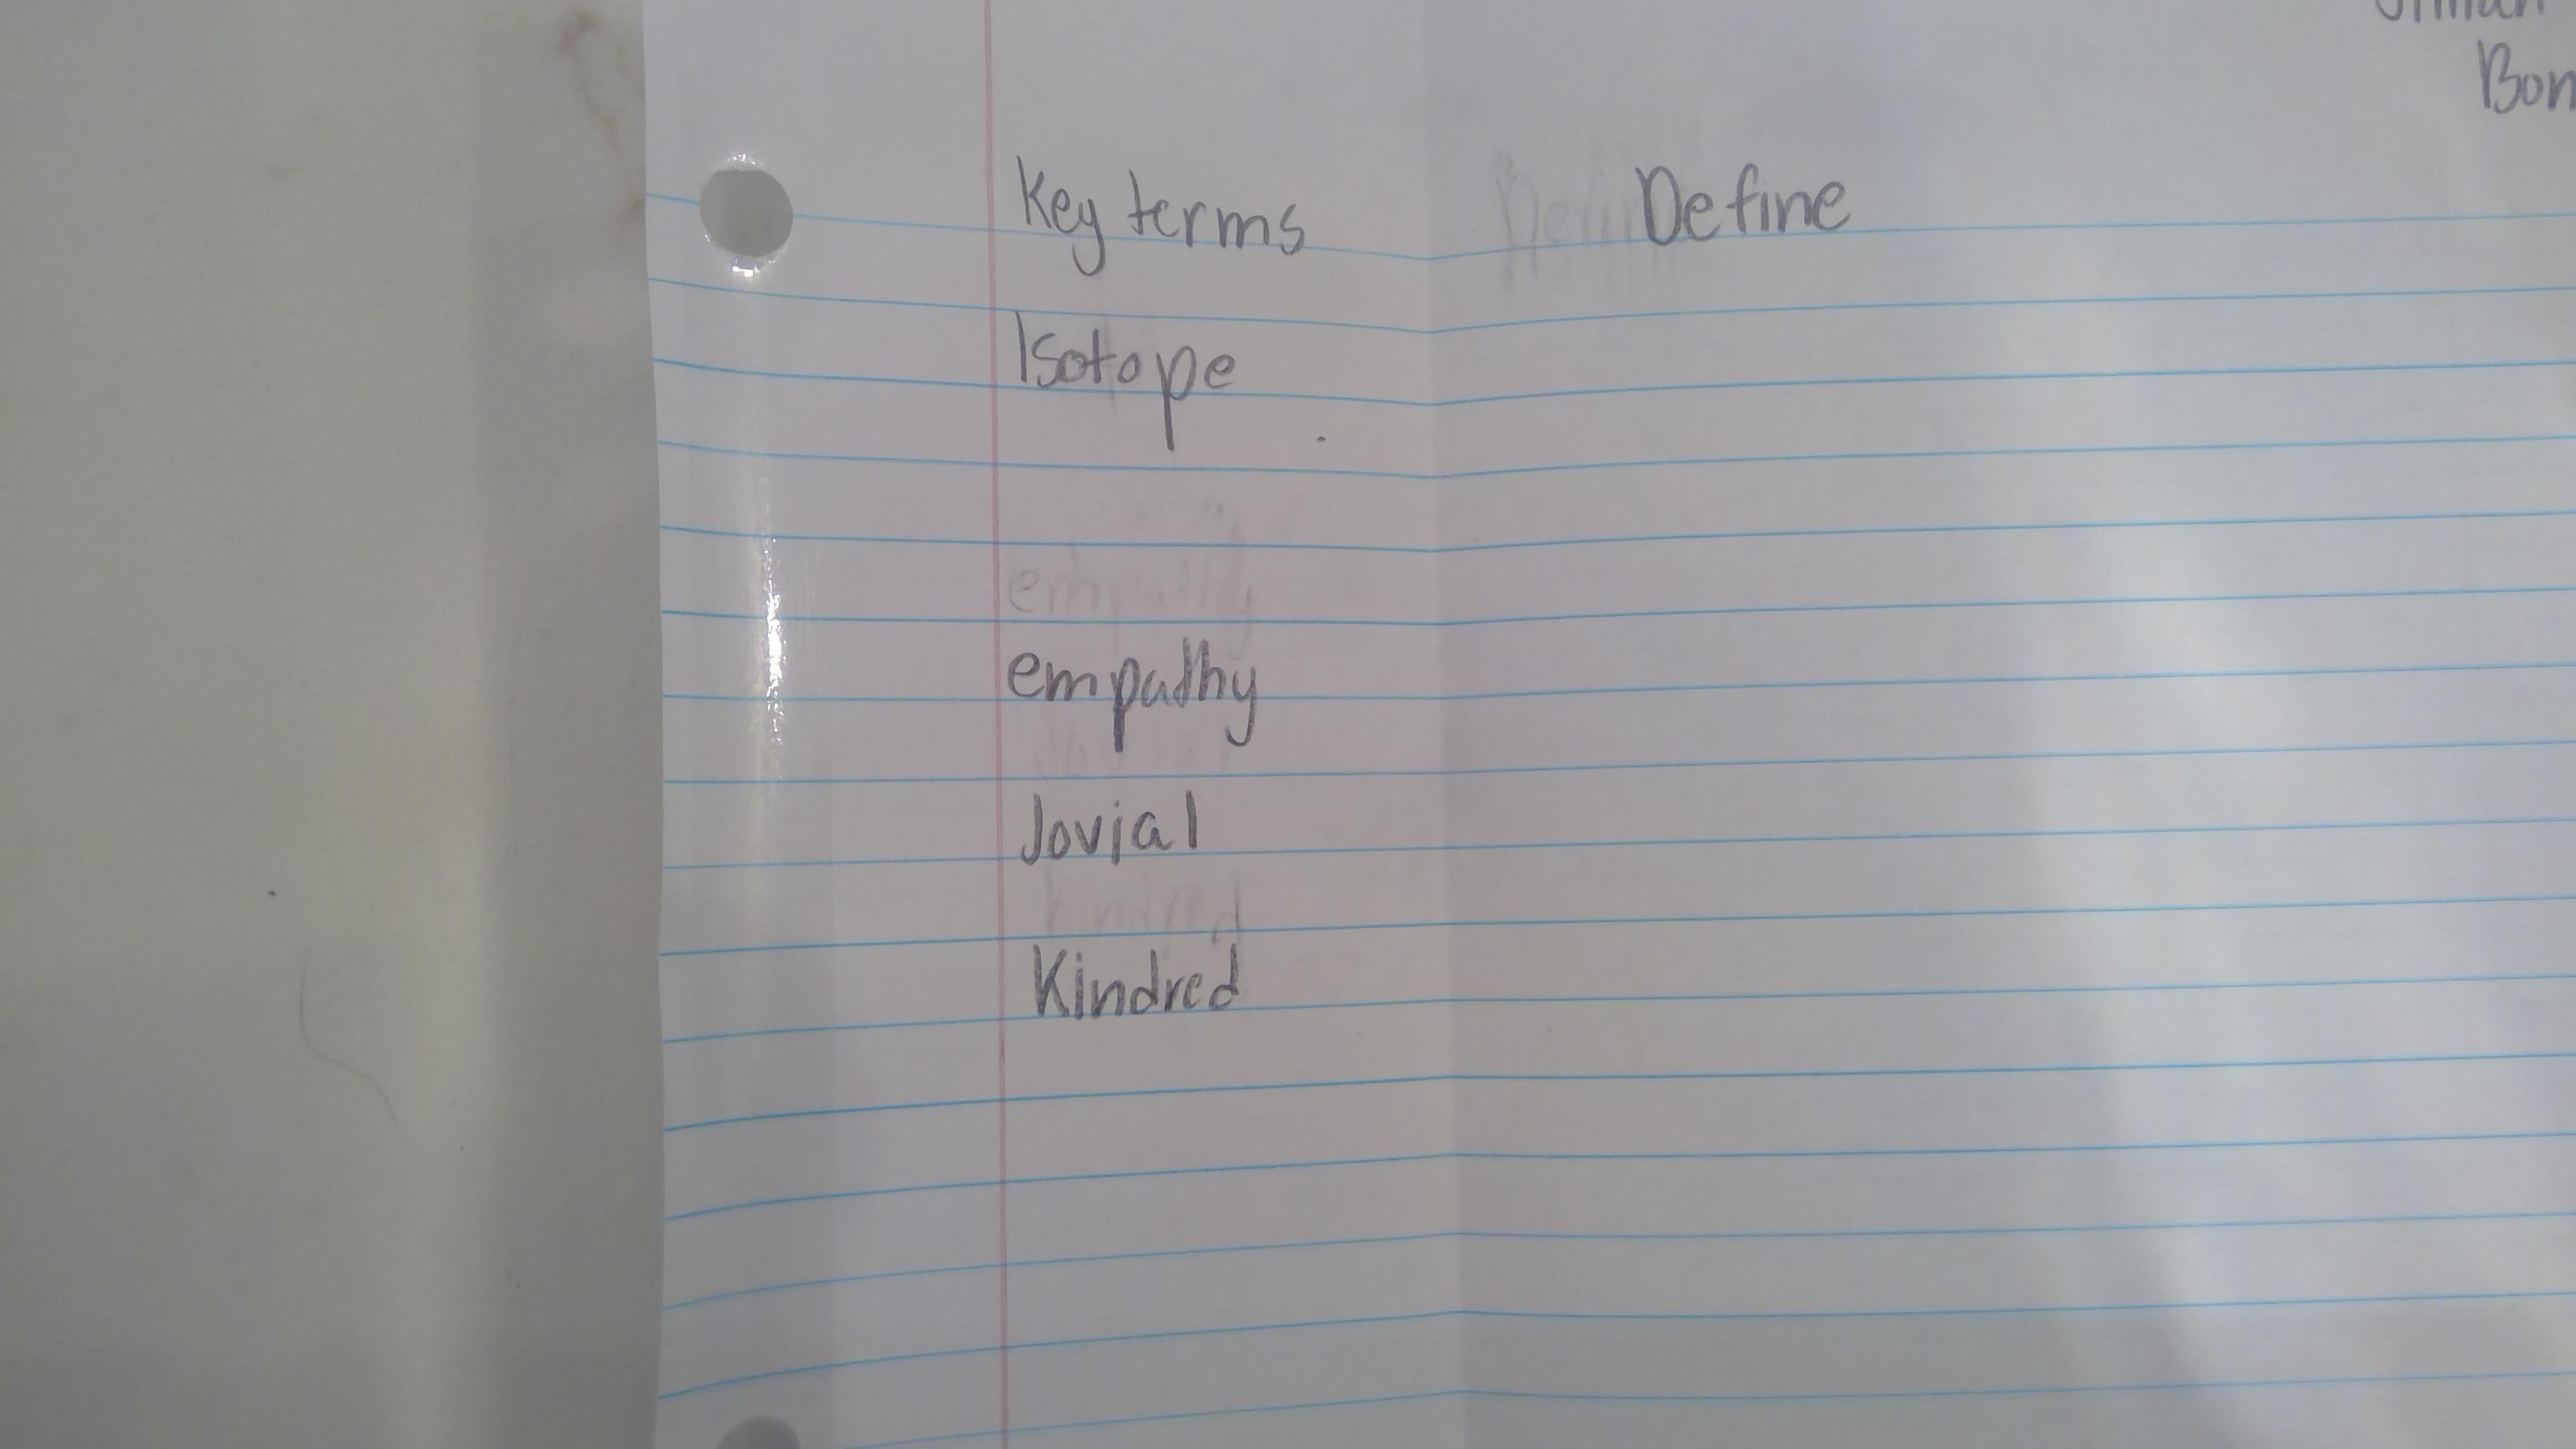 Bon
Key terms Define
Isotope
empathy
Jovial
Kindred